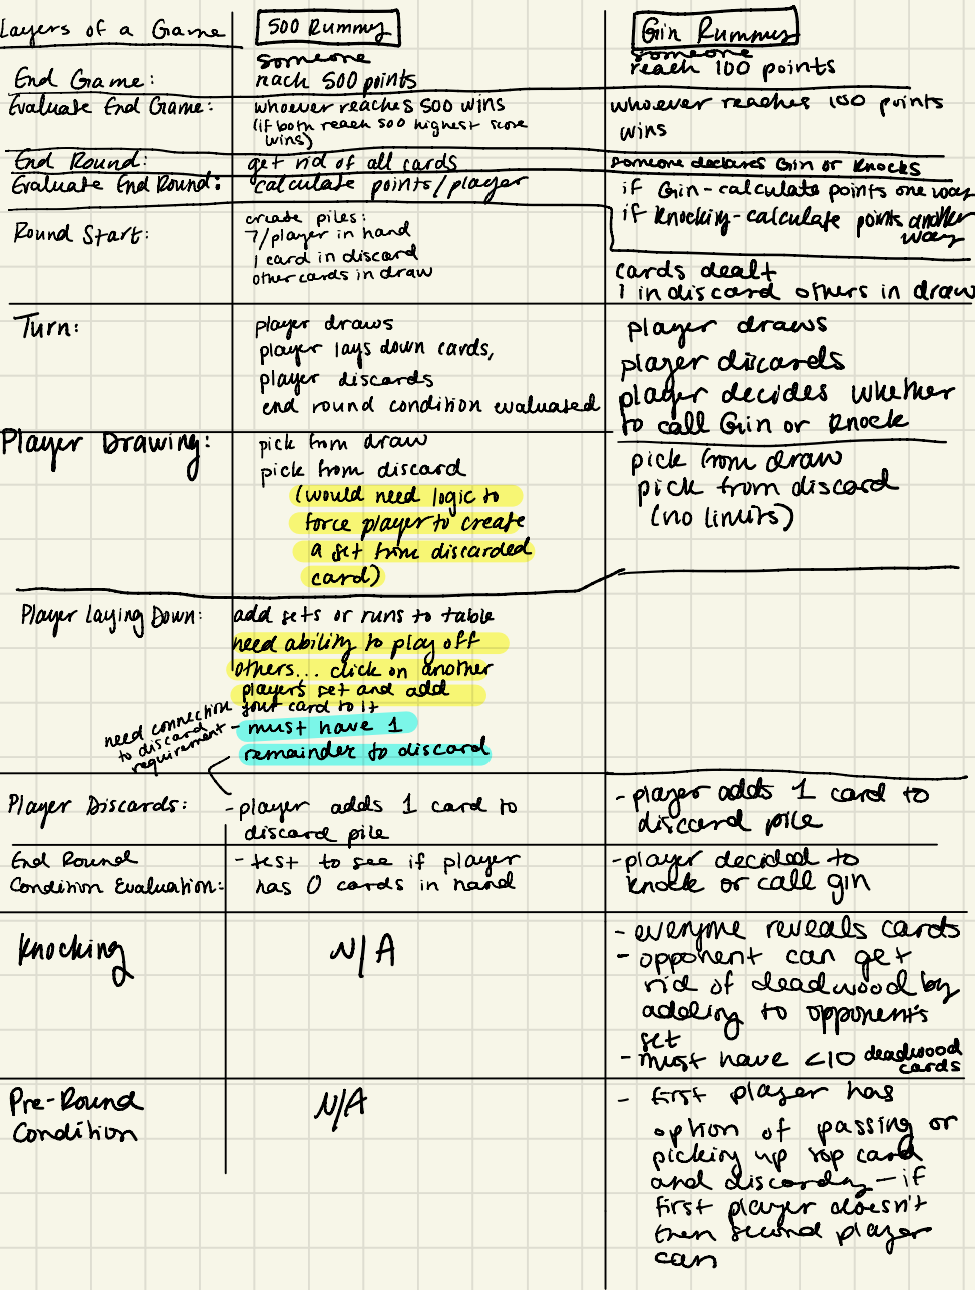 Layers of a Game
500 Rummy
Gin Rummy
End Game:
someone
reach 500 points
someone
reach 100 points
Evaluate End Game:
whoever reaches 500 wins
(if both reach 500 highest score
wins)
whoever reaches 100 points
wins
End Round:
get rid of all cards
someone declares Gin or Knocks
Evaluate End Round:
calculate points/player
if Gin - calculate points one way
if Knocking - calculate points another
way
Round Start:
create piles:
7/player in hand
1 card in discard
other cards in draw
cards dealt
1 in discard others in draw
Turn:
player draws
player lays down cards,
player discards
end round condition evaluated
player draws
player discards
player decides whether
to call Gin or Knock
Player Drawing:
pick from draw
pick from discard
(would need logic to
force player to create
a set from discarded
card)
pick from draw
pick from discard
(no limits)
Player Laying Down:
add sets or runs to table
need ability to play off
others... click on another
players set and add
your card to it
- must have 1
remainder to discard
need connection
to discard
requirement
Player Discards:
- player adds 1 card to
discard pile
- player adds 1 card to
discard pile
End Round
Condition Evaluation:
- test to see if player
has 0 cards in hand
- player decided to
knock or call gin
Knocking
N/A
- everyone reveals cards
- opponent can get
rid of deadwood by
adding to opponent's
set
- must have <10 deadwood
cards
Pre-Round
Condition
N/A
- first player has
option of passing or
picking up top card
and discarding - if
first player doesn't
then second player
can